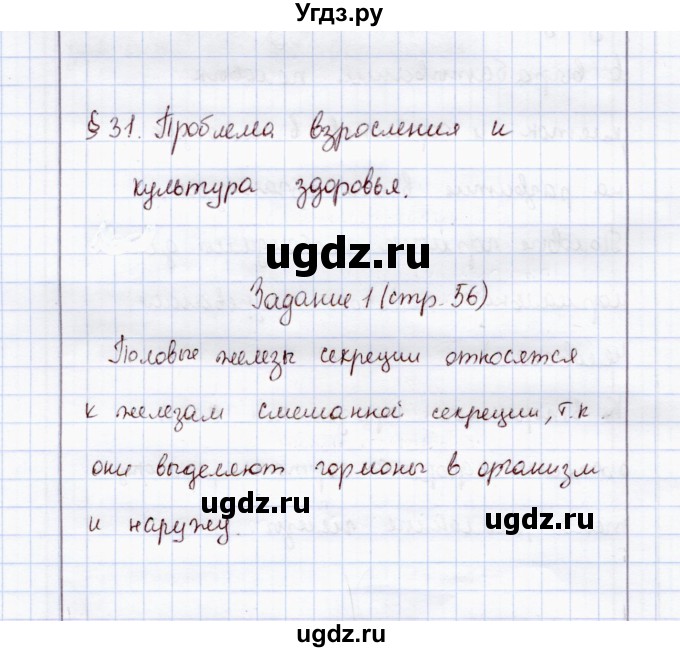 Угдз.ру
§ 31. Проблема взросления и
культура здоровья.
ugdz.ru
Задание 1 (стр. 56)
Половые железы секреции относятся
к железам смешанной секреции, т.к.
они выделяют гормоны в организм
ugdz.ru ugdz.ru
и наружу.
ugdz.ru